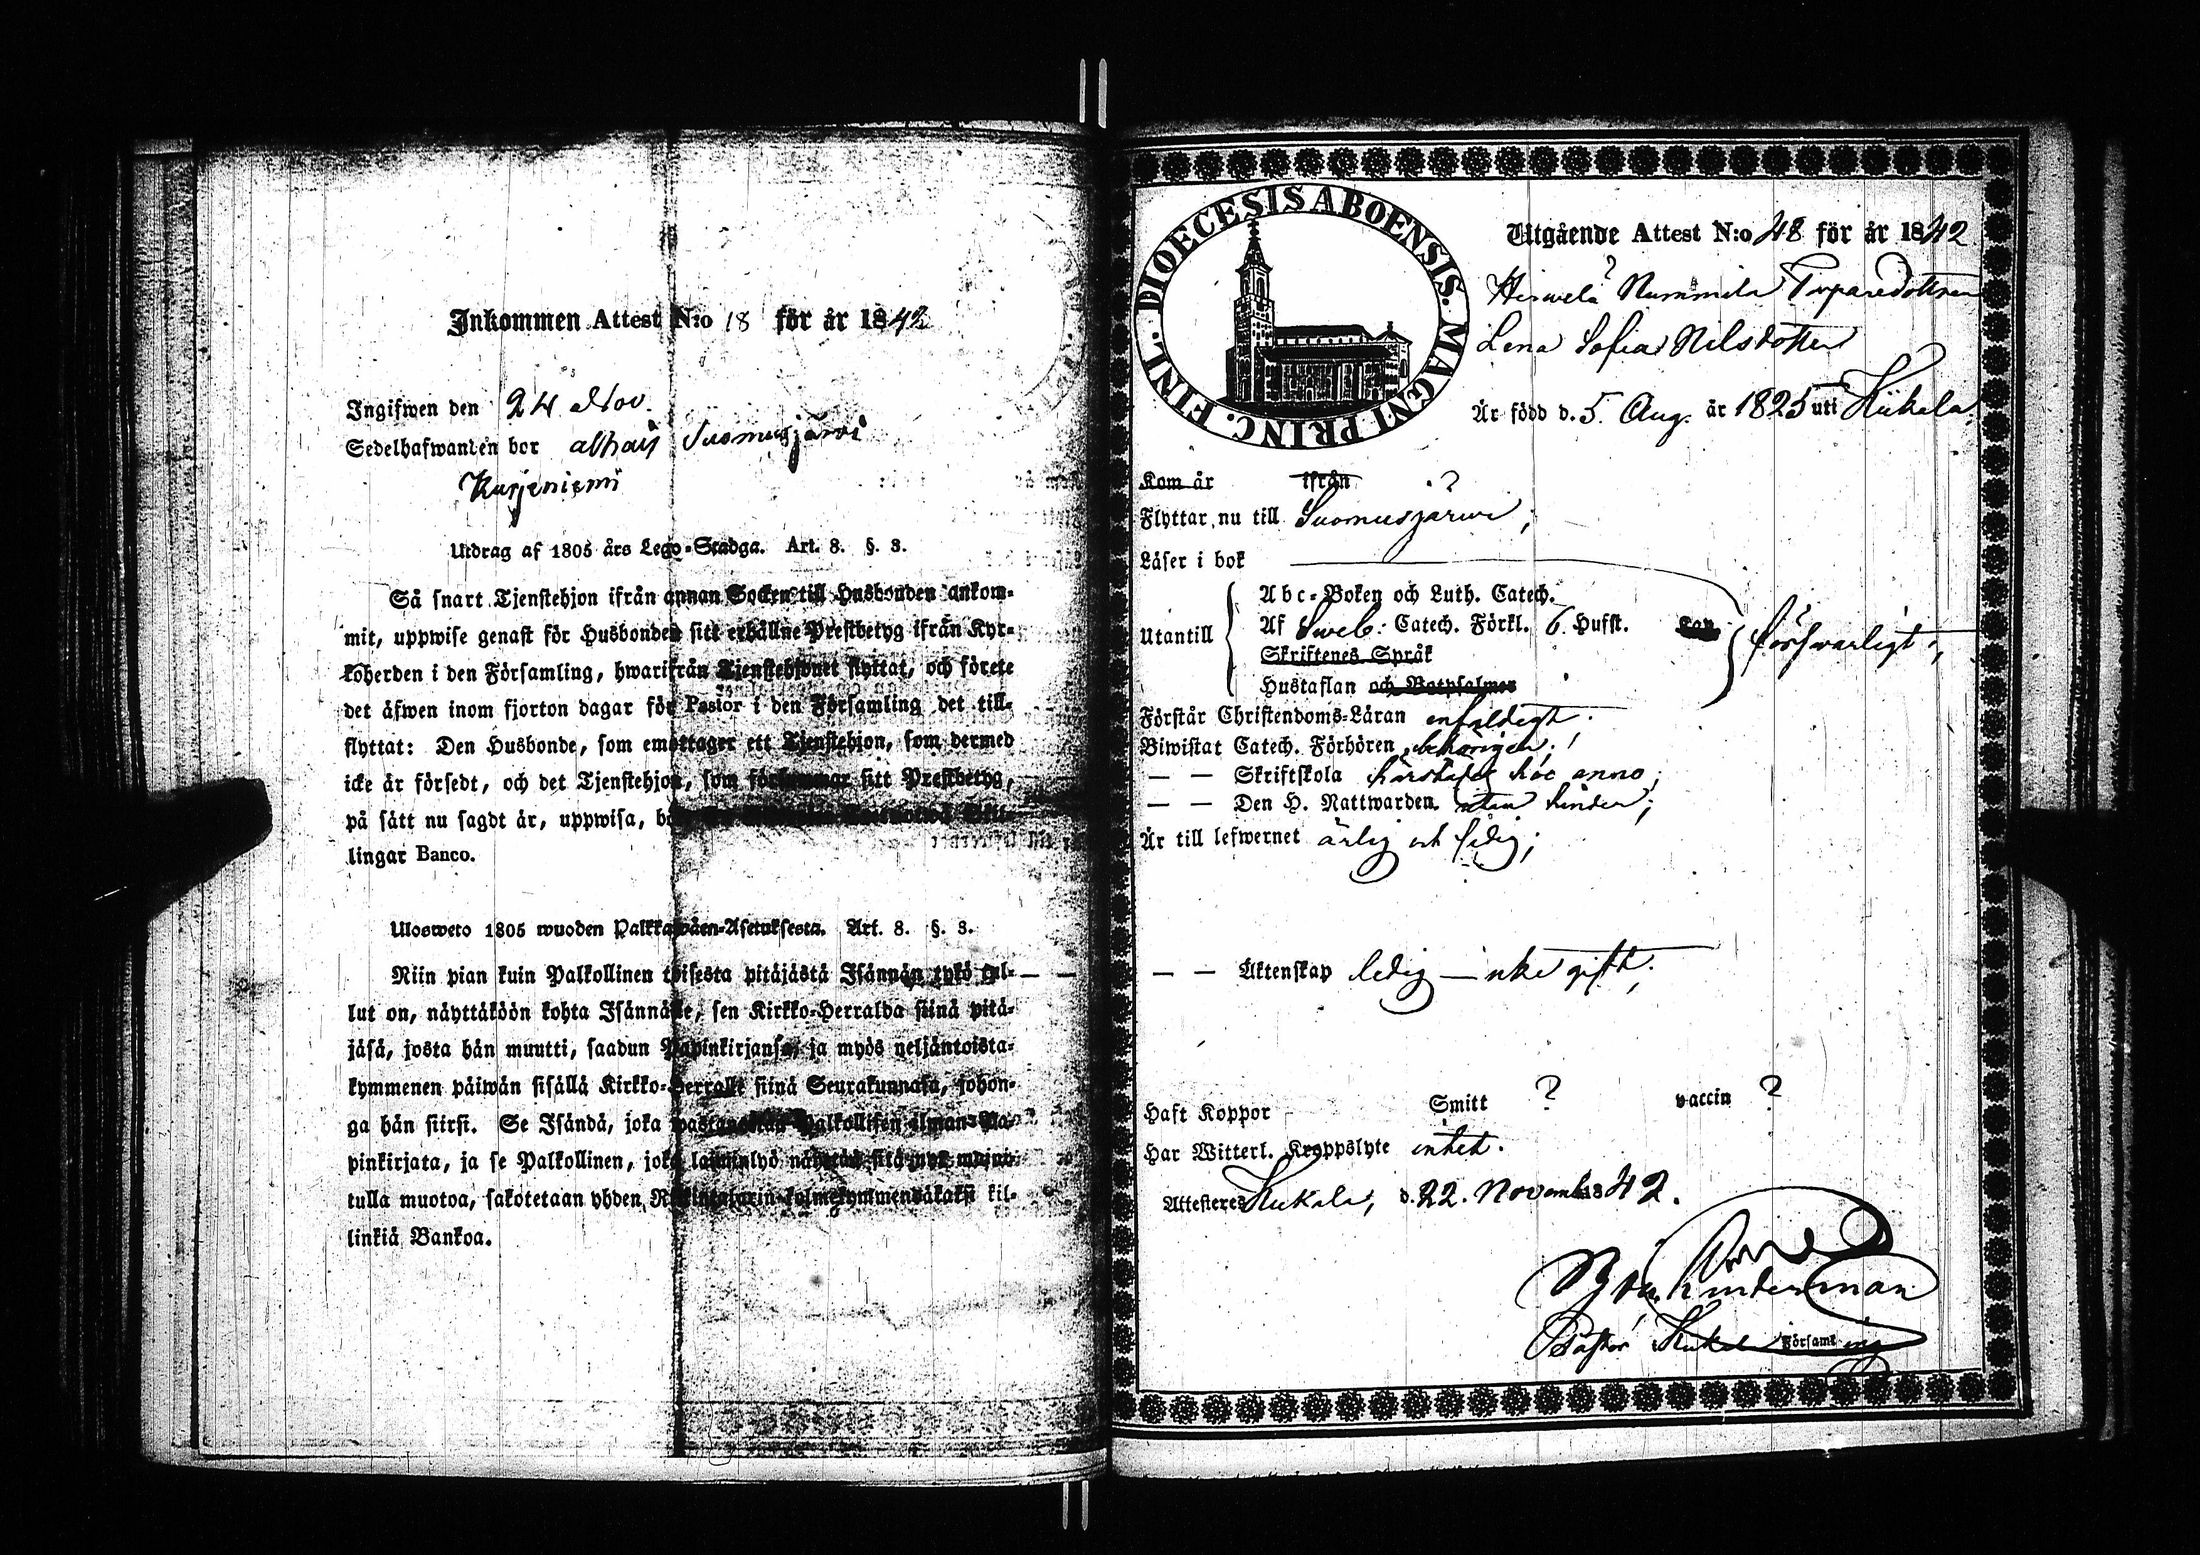 Inkommen Attest N:o 18 för år 1842
Ingifwen den 24 Nov.
Sedelhafwanden bor alhär Suomusjärvi
Kurjeniemi
Utdrag af 1805 års Lego-Stadga. Art. 8. §. 3.
Så snart Tjenstehjon ifrån annan Socken till Husbonden ankom-
mit, uppwise genast för Husbonden sitt erhållne Prestbetyg ifrån Kyr-
koherden i den Församling, hwarifrån Tjenstehjonet flyttat, och förete
det äfwen inom fjorton dagar för Pastor i den Församling det till-
flyttat: Den Husbonde, som emottager ett Tjenstehjon, som dermed
icke är försedt, och det Tjenstehjon, som försummar sitt Prestbetyg,
på sätt nu sagdt är, uppwisa, 
lingar Banco.
Ulosweto 1805 wuoden Palkkawäen-Asetuksesta. Art. 8. §. 3.
Niin pian kuin Palkollinen toisesta pitäjästä Isännän tykö tul-
lut on, näyttäköön kohta Isännälle, sen Kirkko-Herralda siinä pitä-
jäsä, josta hän muutti, saadun Papinkirjansa, ja myös neljäntoista-
kymmenen päiwän sisällä Kirkko-Herralle siinä Seurakunnasa, johon-
ga hän siirsi. Se Isändä, joka wastanottaa Palkollisen ilman Pa-
pinkirjata, ja se Palkollinen, joka laiminlyö näyttää sitä nyt maini-
tulla muotoa, sakotetaan yhden Riikintalarin kolmekymmendäkaksi kil-
linkiä Bankoa.
DIOECESIS ABOENSIS. MAGNI PRINC. FINL.
Utgående Attest N:o 48 för år 1842
? Nummila Torparedottren
Lena Sofia Nilsdotter
Är född d. 5 Aug. år 1825 uti Kiikala.
Kom år ifrån
Flyttar nu till Suomusjärwi, ?
Läser i bok
Abc-Boken och Luth. Catech.
Utantill Af Sweb: Catech. Förkl. 6. Hufst. Cap. försvarligt;
Skriftenes Språk
Hustaflan och Botpsalmer
Förstår Christendoms-Läran enfaldigt.
Biwistat Catech. Förhören behörigen;
— — Skriftskola härstädes hoc anno;
— — Den H. Nattwarden utan hinder;
Är till lefwernet ärlig och sedig;
— — Äktenskap ledig — icke gift;
Haft Koppor Smitt ? vaccin ?
Har Witterl. Kroppslyte intet.
Attesteres Kiikala, d. 22. November 1842.
Pastor Kiikala Församling